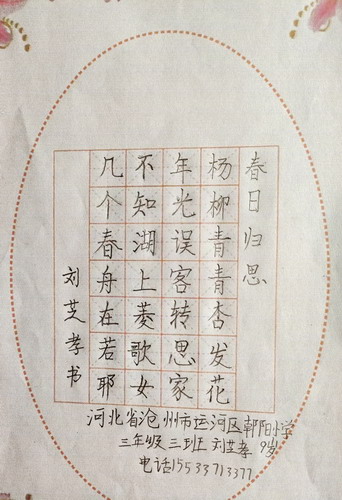 春日归思
杨柳青青杏发花
年光误客转思家
不知湖上菱歌女
几个春舟在若耶
刘芝孝书
河北省沧州市运河区朝阳小学
三年级三班 刘芝孝 9岁
电话15533713377